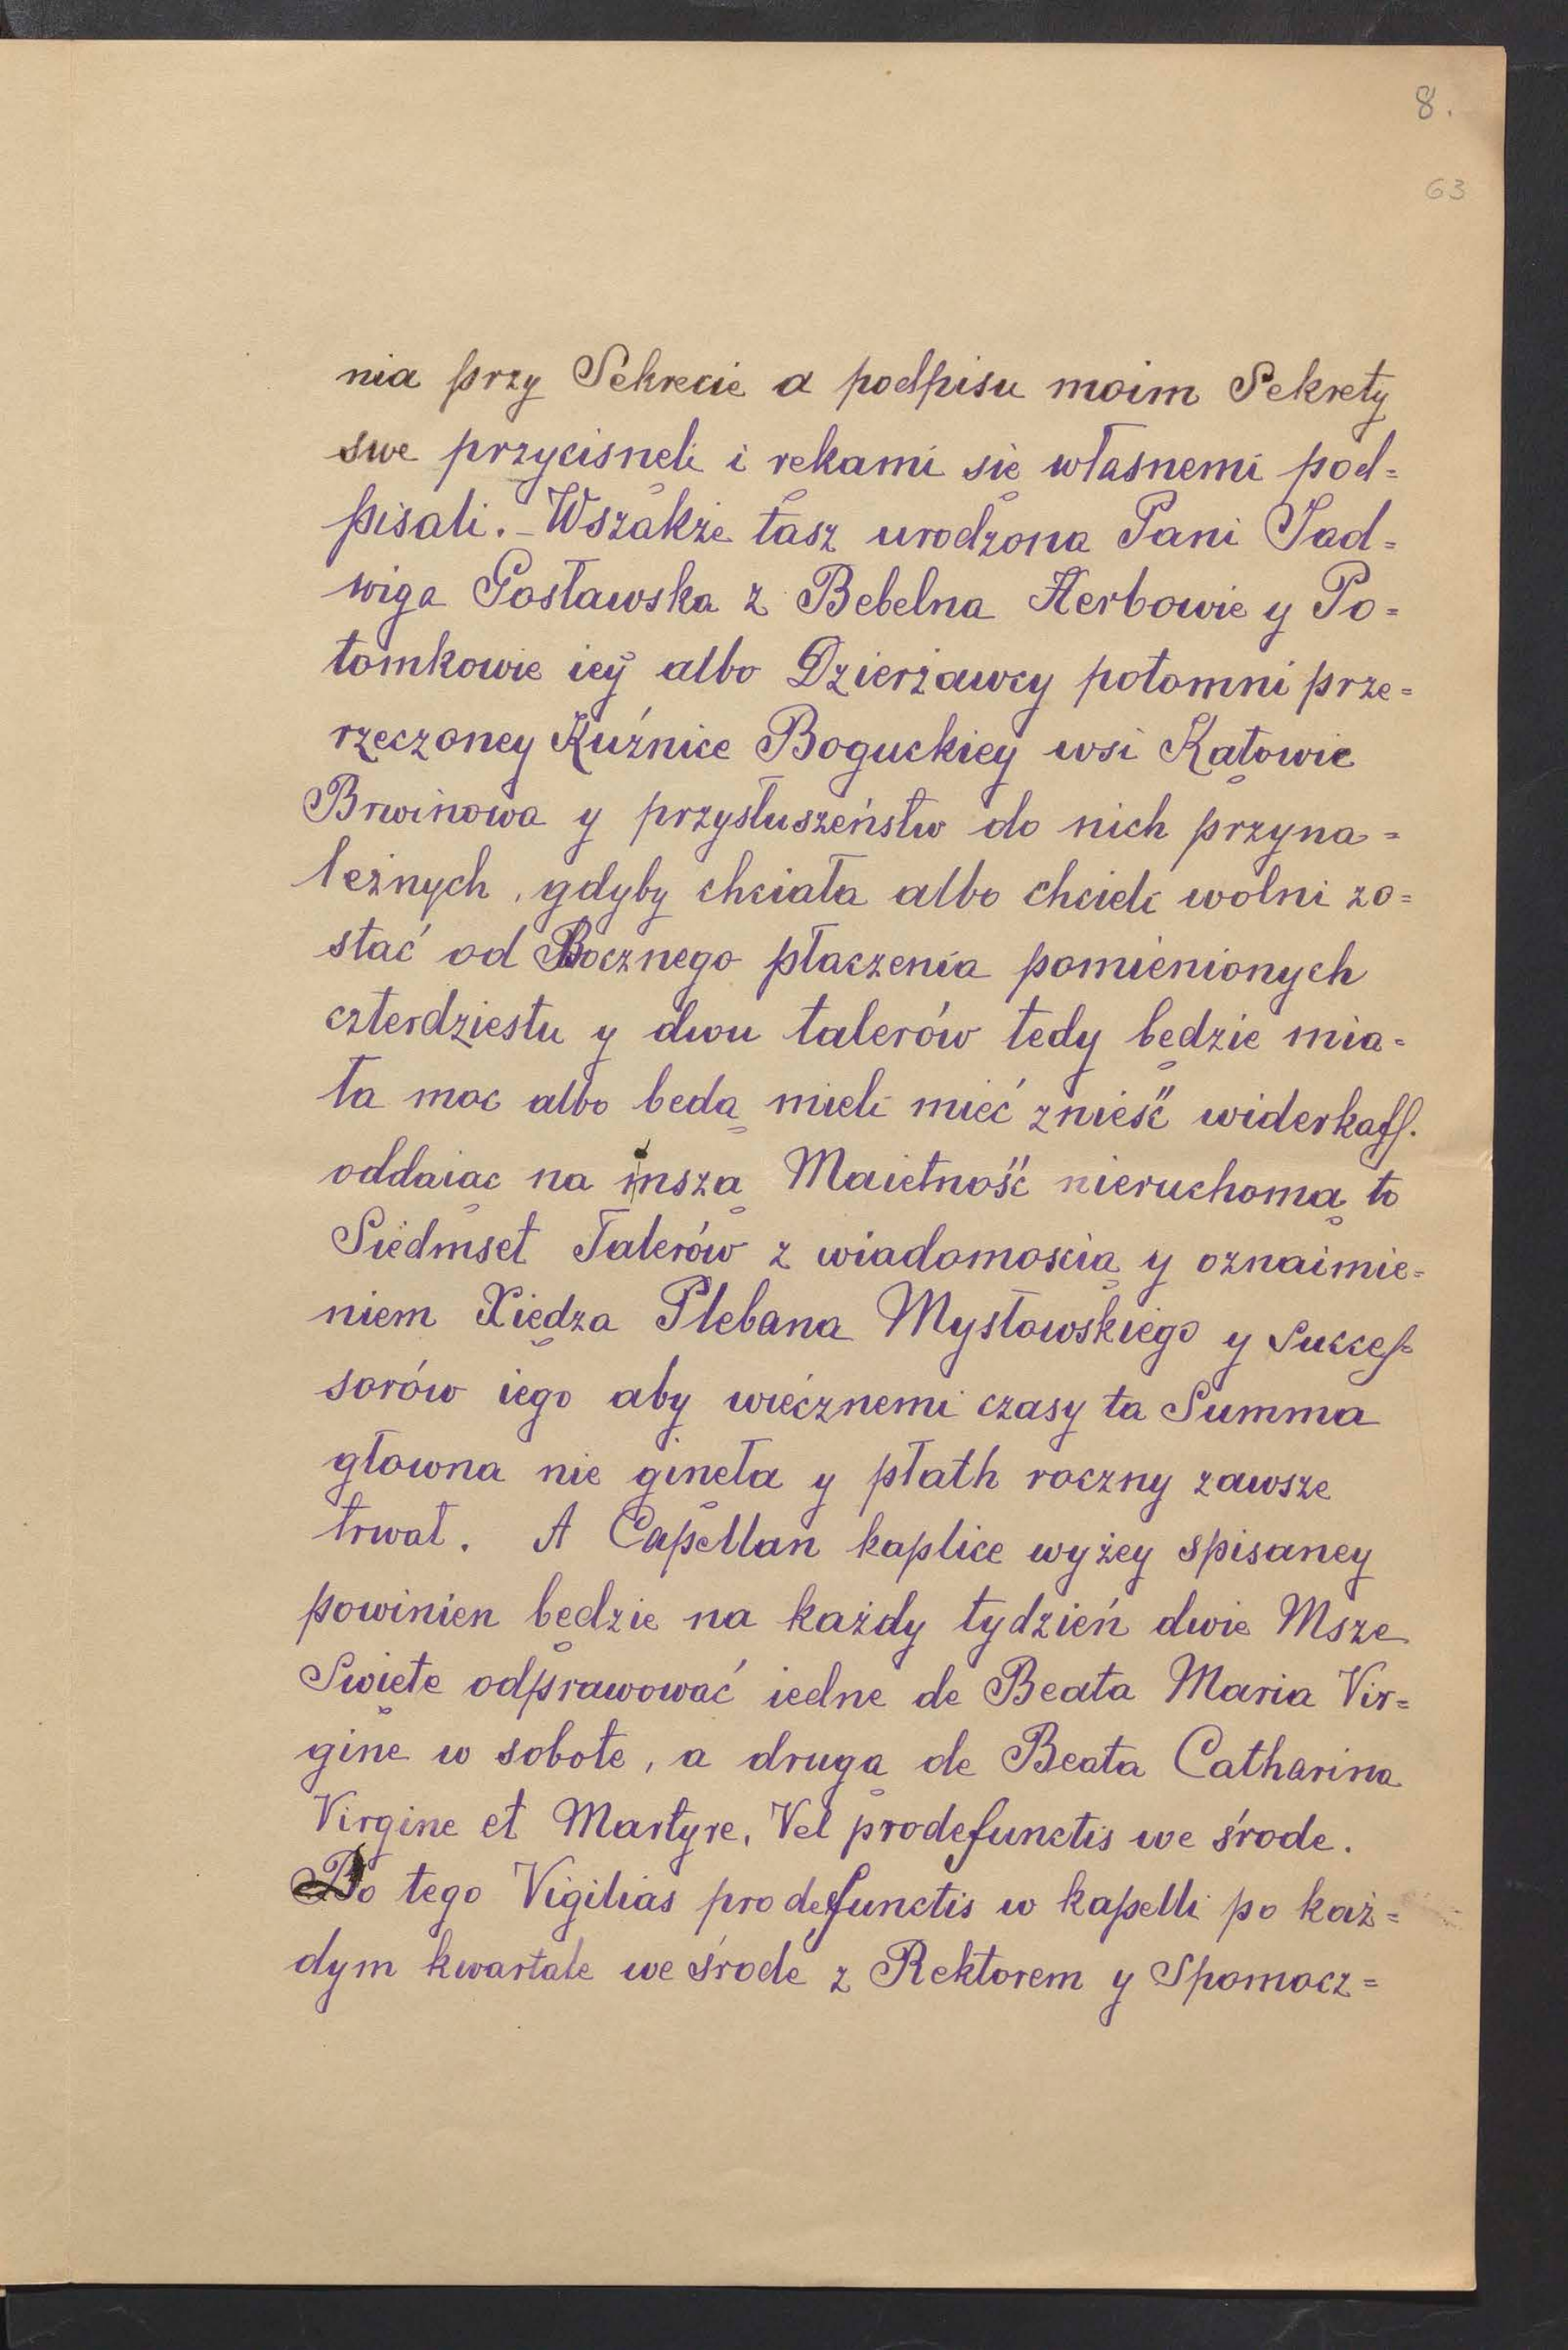 8.
63
nia przy Sekrecie a podpisu moim Sekrety
swe przycisneli i rękami się własnemi pod=
pisali. – Wszakże tasz urodzona Pani Jad=
wiga Gosławska z Bebelna Herbowie y Po=
tomkowie iey albo Dzierżawcy potomni prze=
rzeczoney Kuźnice Boguckiey wsi Katowic
Brwinowa y przysłuszeństw do nich przyna=
leżnych, gdyby chciała albo chcieli wolni zo=
stać od Rocznego płaczenia pomienionych
czterdziestu y dwu talerów tedy będzie mia=
ła moc albo bedą mieli mieć znieść widerkaff.
oddaiąc na inszą Maiętność nieruchomą to
Siedmset Talerów z wiadomoscią y oznaimie=
niem Xiędza Plebana Mysłowskiego y Succes=
sorów iego aby wiecznemi czasy ta Summa
głowna nie ginęła y płath roczny zawsze
trwał. A Capellan kaplice wyżey spisaney
powinien będzie na każdy tydzień dwie Msze
Swięte odprawować iedne de Beata Maria Vir=
gine w sobote, a drugą de Beata Catharina
Virgine et Martyre, Vel prodefunctis we środe.
Do tego Vigilias pro defunctis w kapelli po każ=
dym kwartale we środe z Rektorem y Spomocz=